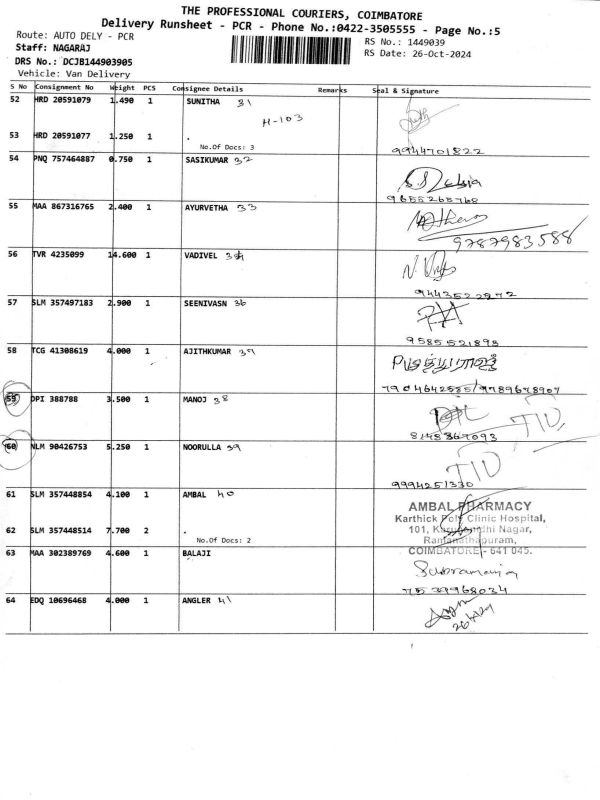 THE PROFESSIONAL COURIERS, COIMBATORE
Delivery Runsheet - PCR - Phone No.:0422-3505555 - Page No.:5
Route: AUTO DELY - PCR
RS No.: 1449039
Staff: NAGARAJ
RS Date: 26-Oct-2024
DRS No.: DCJB144903905
Vehicle: Van Delivery
S No Consignment No Weight PCS Consignee Details Remarks Seal & Signature
52 HRD 20591079 1.490 1 SUNITHA 31
H-103
53 HRD 20591077 1.250 1 .
No.Of Docs: 3 9944701822
54 PNQ 757464887 0.750 1 SASIKUMAR 32
9655265768
55 MAA 867316765 2.400 1 AYURVETHA 33
9787983588
56 TVR 4235099 14.600 1 VADIVEL
9443522972
57 SLM 357497183 2.900 1 SEENIVASN 36
9585521893
58 TCG 41308619 4.000 1 AJITHKUMAR
7904642585/9789678907
59 DPI 388788 3.500 1 MANOJ 38
8148367093
60 NLM 90426753 5.250 1 NOORULLA 39
9994251330
61 SLM 357448854 4.100 1 AMBAL 40
AMBAL PHARMACY
Karthick Poly Clinic Hospital,
62 SLM 357448514 7.700 2 .
101, Nagar,
No.Of Docs: 2
Ramanathapuram,
COIMBATORE - 641 045.
63 MAA 302389769 4.600 1 BALAJI
7539968034
64 EDQ 10696468 4.000 1 ANGLER 41